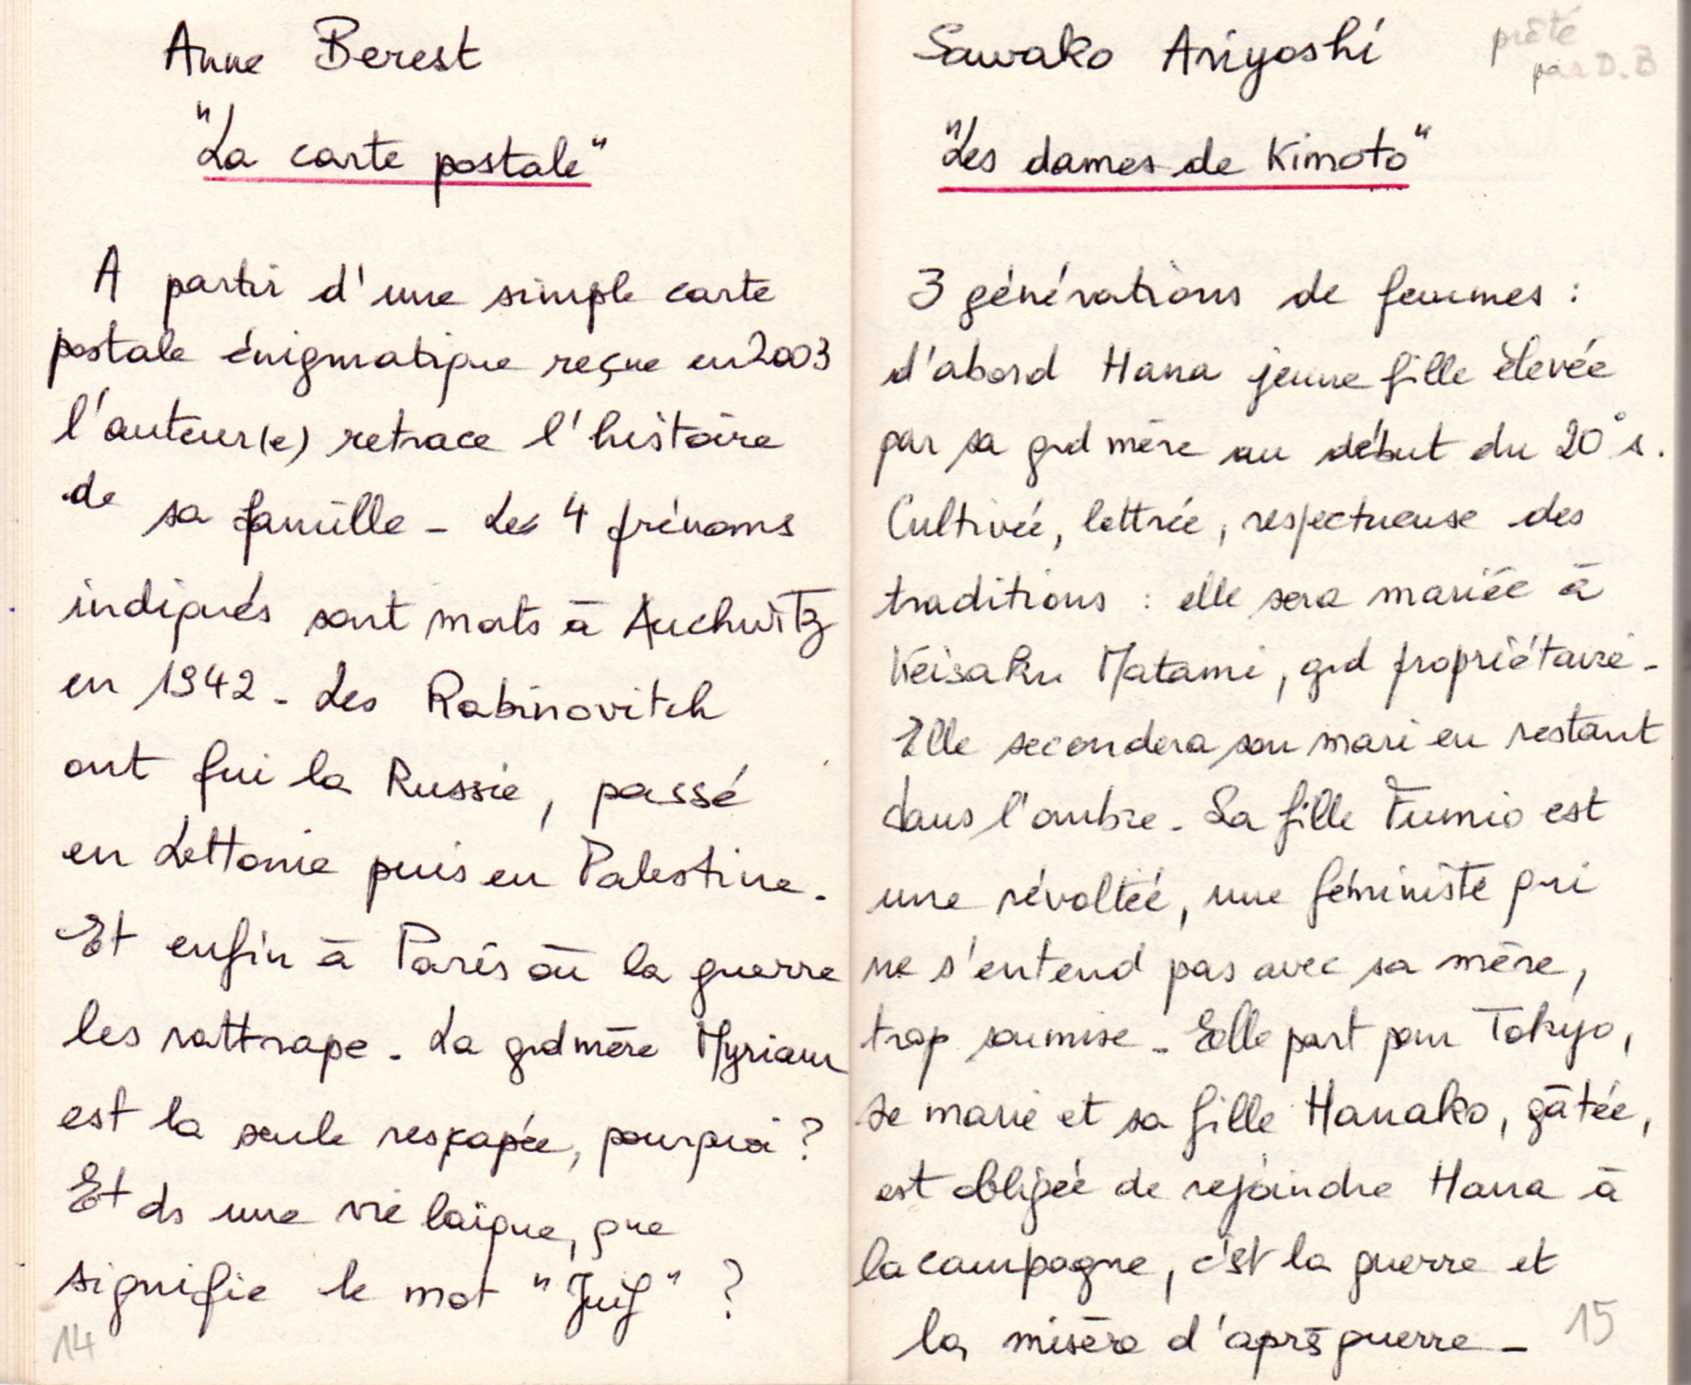 Anne Berest
"La carte postale"
A partir d'une simple carte
postale énigmatique reçue en 2003
l'auteur(e) retrace l'histoire
de sa famille - Les 4 prénoms
indiqués sont morts à Auchwitz
en 1942 - Les Rabinovitch
ont fui la Russie, passé
en Lettonie puis en Palestine.
Et enfin à Paris où la guerre
les rattrape. La gd mère Myriam
est la seule rescapée, pourquoi ?
Et ds une vie laïque, que
signifie le mot "Juif" ?
14
Sawako Ariyoshi
prêté
par D.B
"Les dames de Kimoto"
3 générations de femmes :
d'abord Hana jeune fille élevée
par sa gd mère au début du 20° s.
Cultivée, lettrée, respectueuse des
traditions : elle sera mariée à
Keisaku Matami, gd propriétaire -
Elle secondera son mari en restant
dans l'ombre - Sa fille Fumio est
une révoltée, une féministe qui
ne s'entend pas avec sa mère,
trop soumise - Elle part pour Tokyo,
se marie et sa fille Hanako, gâtée,
est obligée de rejoindre Hana à
la campagne, c'est la guerre et
la misère d'après guerre -
15